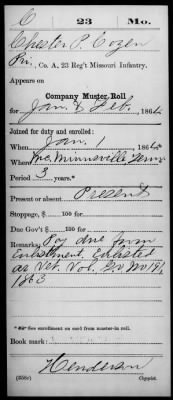 C 23 Mo.
Chester P. Cozen
Pri, Co. A, 23 Reg't Missouri Infantry.
Appears on
Company Muster Roll
for Jan & Feb, 1864.
Joined for duty and enrolled:
When Jan. 1, 1864
Where McMinnville Tenn
Period 3 years.*
Present or absent Present
Stoppage, $ 100 for
Due Gov't $ 100 for
Remarks: Pay due from
Enlistment. Enlisted
as Vet. Vol.
1863
*See enrollment on card from muster-in roll.
Book mark:
Henderson
(358c) Copyist.